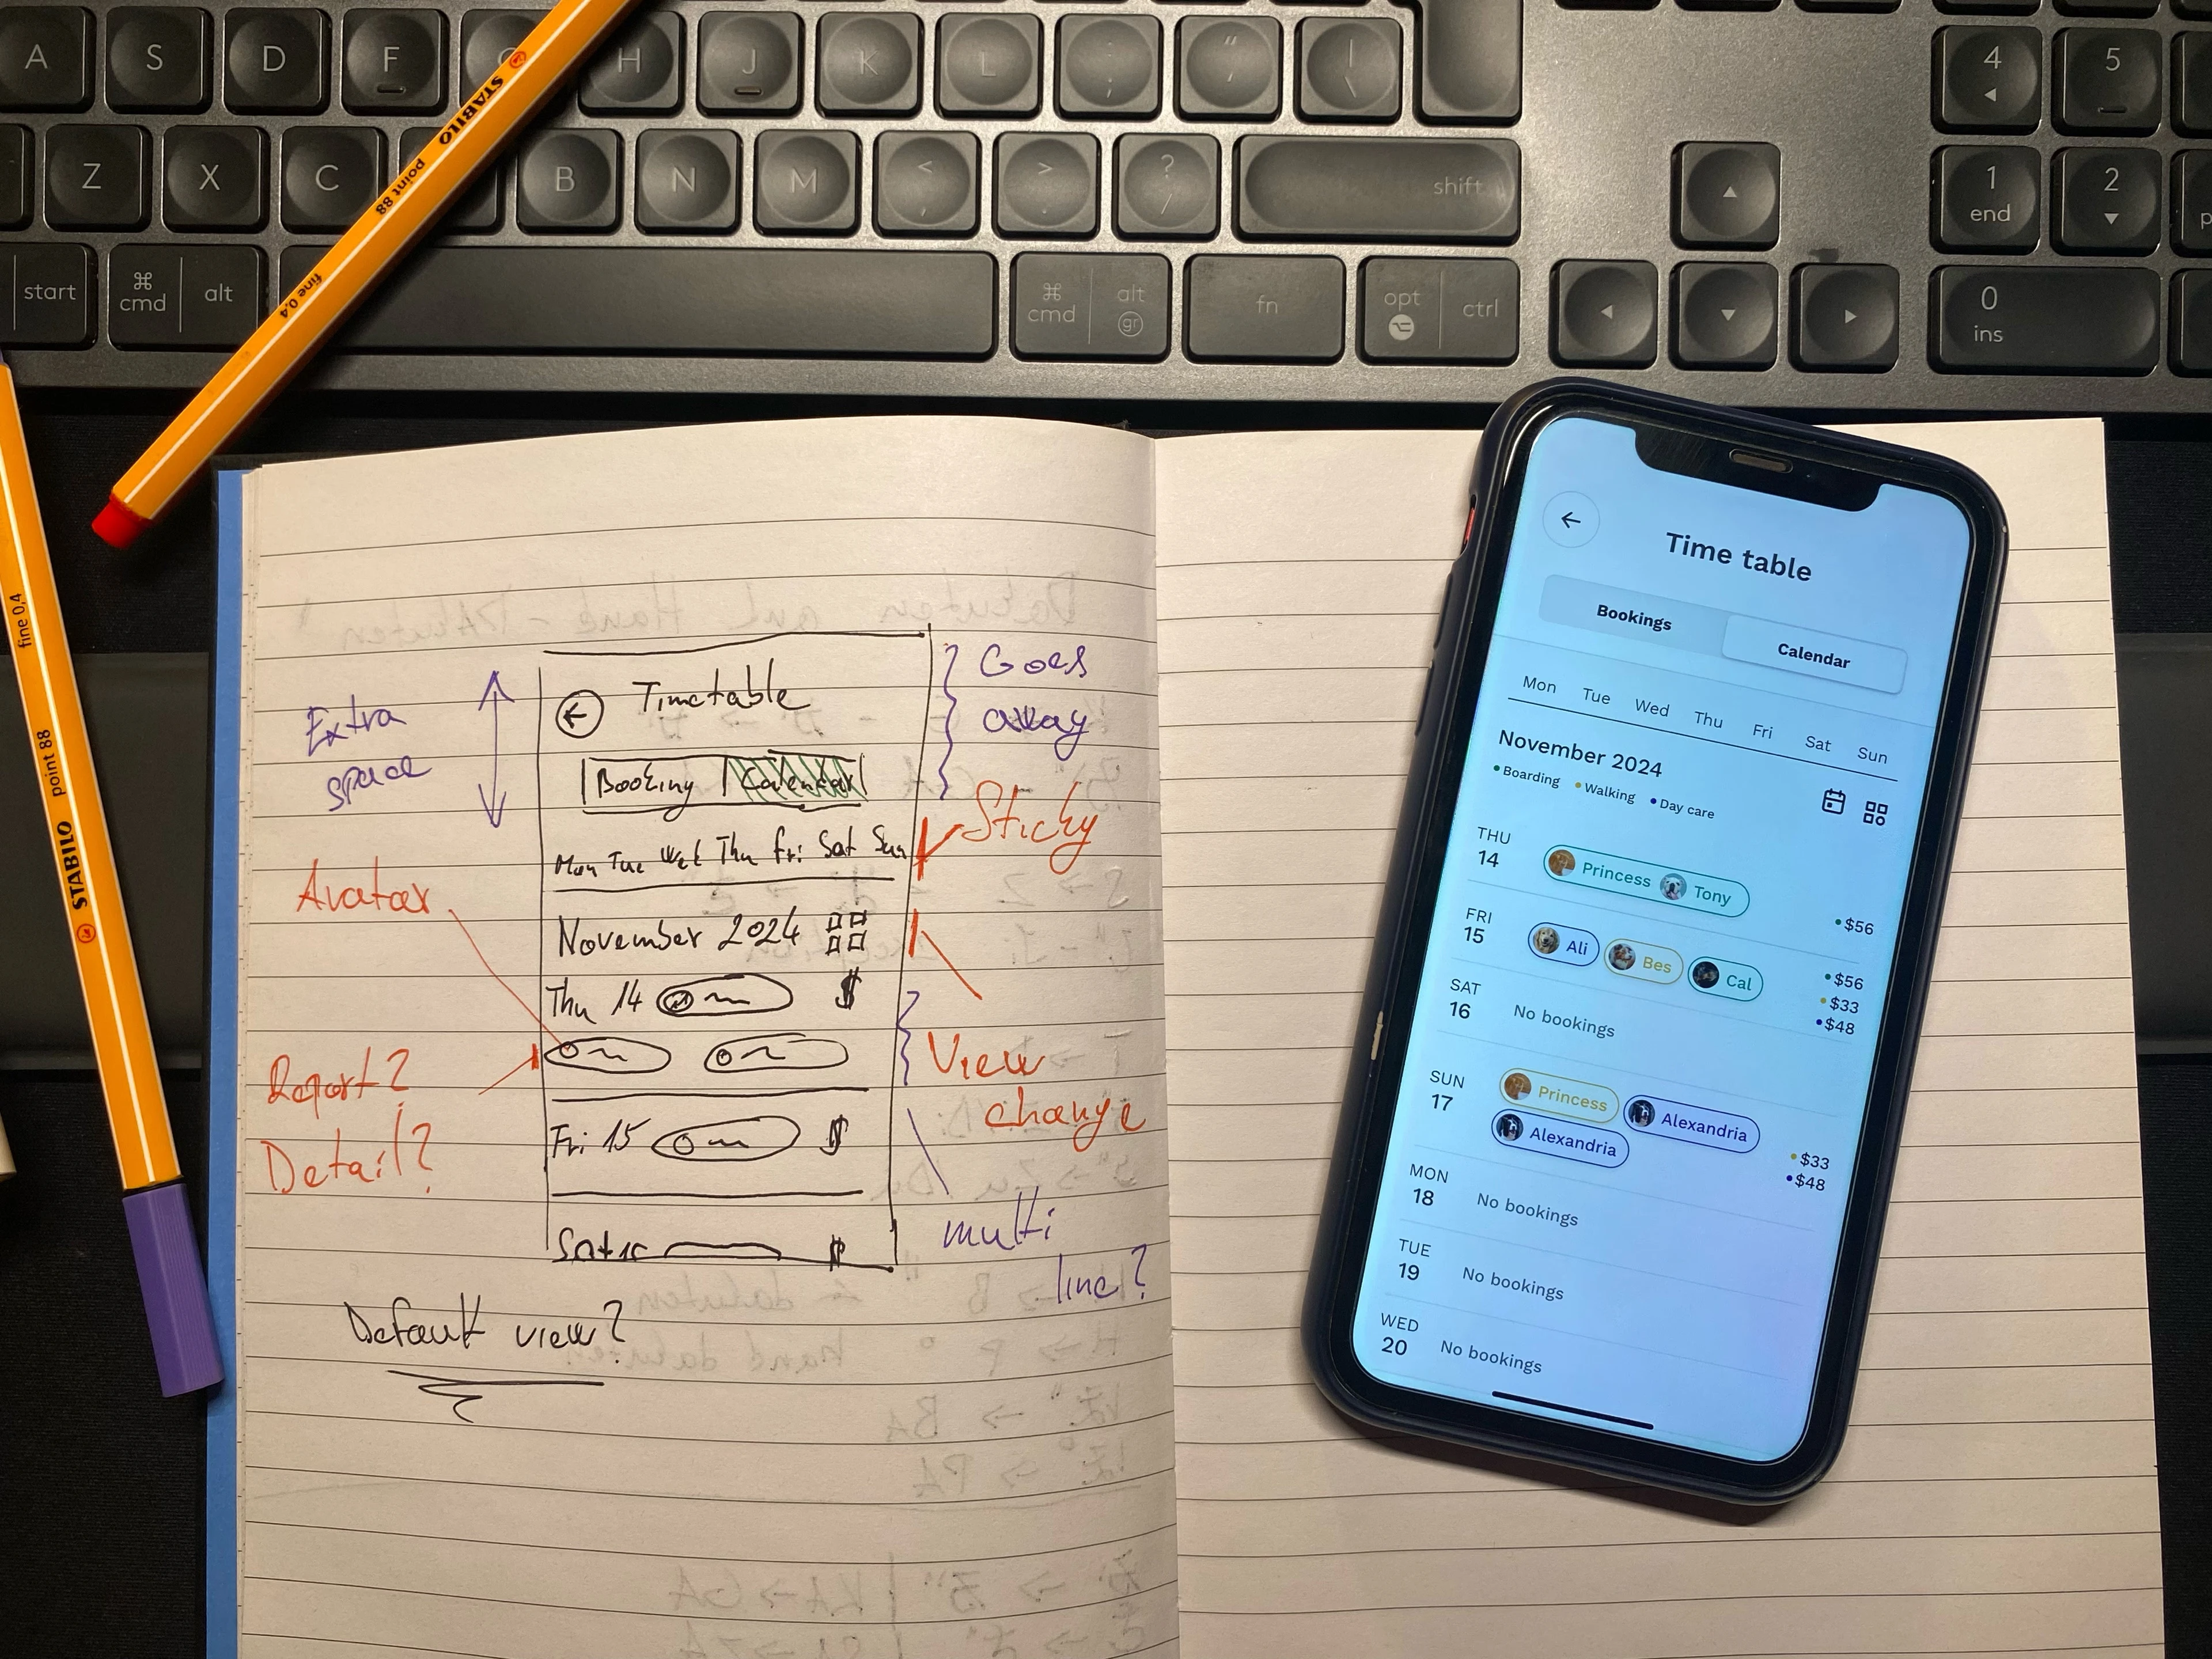 A S D F G H J K L : ; " ' | \
4 5
Z X C B N M < , > . ? / shift
1 end 2
start cmd alt cmd alt gr fn opt ctrl
0 ins
STABILO point 88 fine 0,4
STABILO point 88 fine 0,4
Extra
space
Avatar
Report?
Detail?
Timetable
Booking Calendar
Mon Tue Wed Thu Fri Sat Sun
November 2024
Thu 14 $
Fri 15 $
Sat 16 $
Default view?
Goes
away
Sticky
View
change
multi
line?
Time table
Bookings Calendar
Mon Tue Wed Thu Fri Sat Sun
November 2024
Boarding Walking Day care
THU
14
Princess Tony
$56
FRI
15
Ali Bes Cal
$56
$33
$48
SAT
16
No bookings
SUN
17
Princess Alexandria
Alexandria
$33
$48
MON
18
No bookings
TUE
19
No bookings
WED
20
No bookings